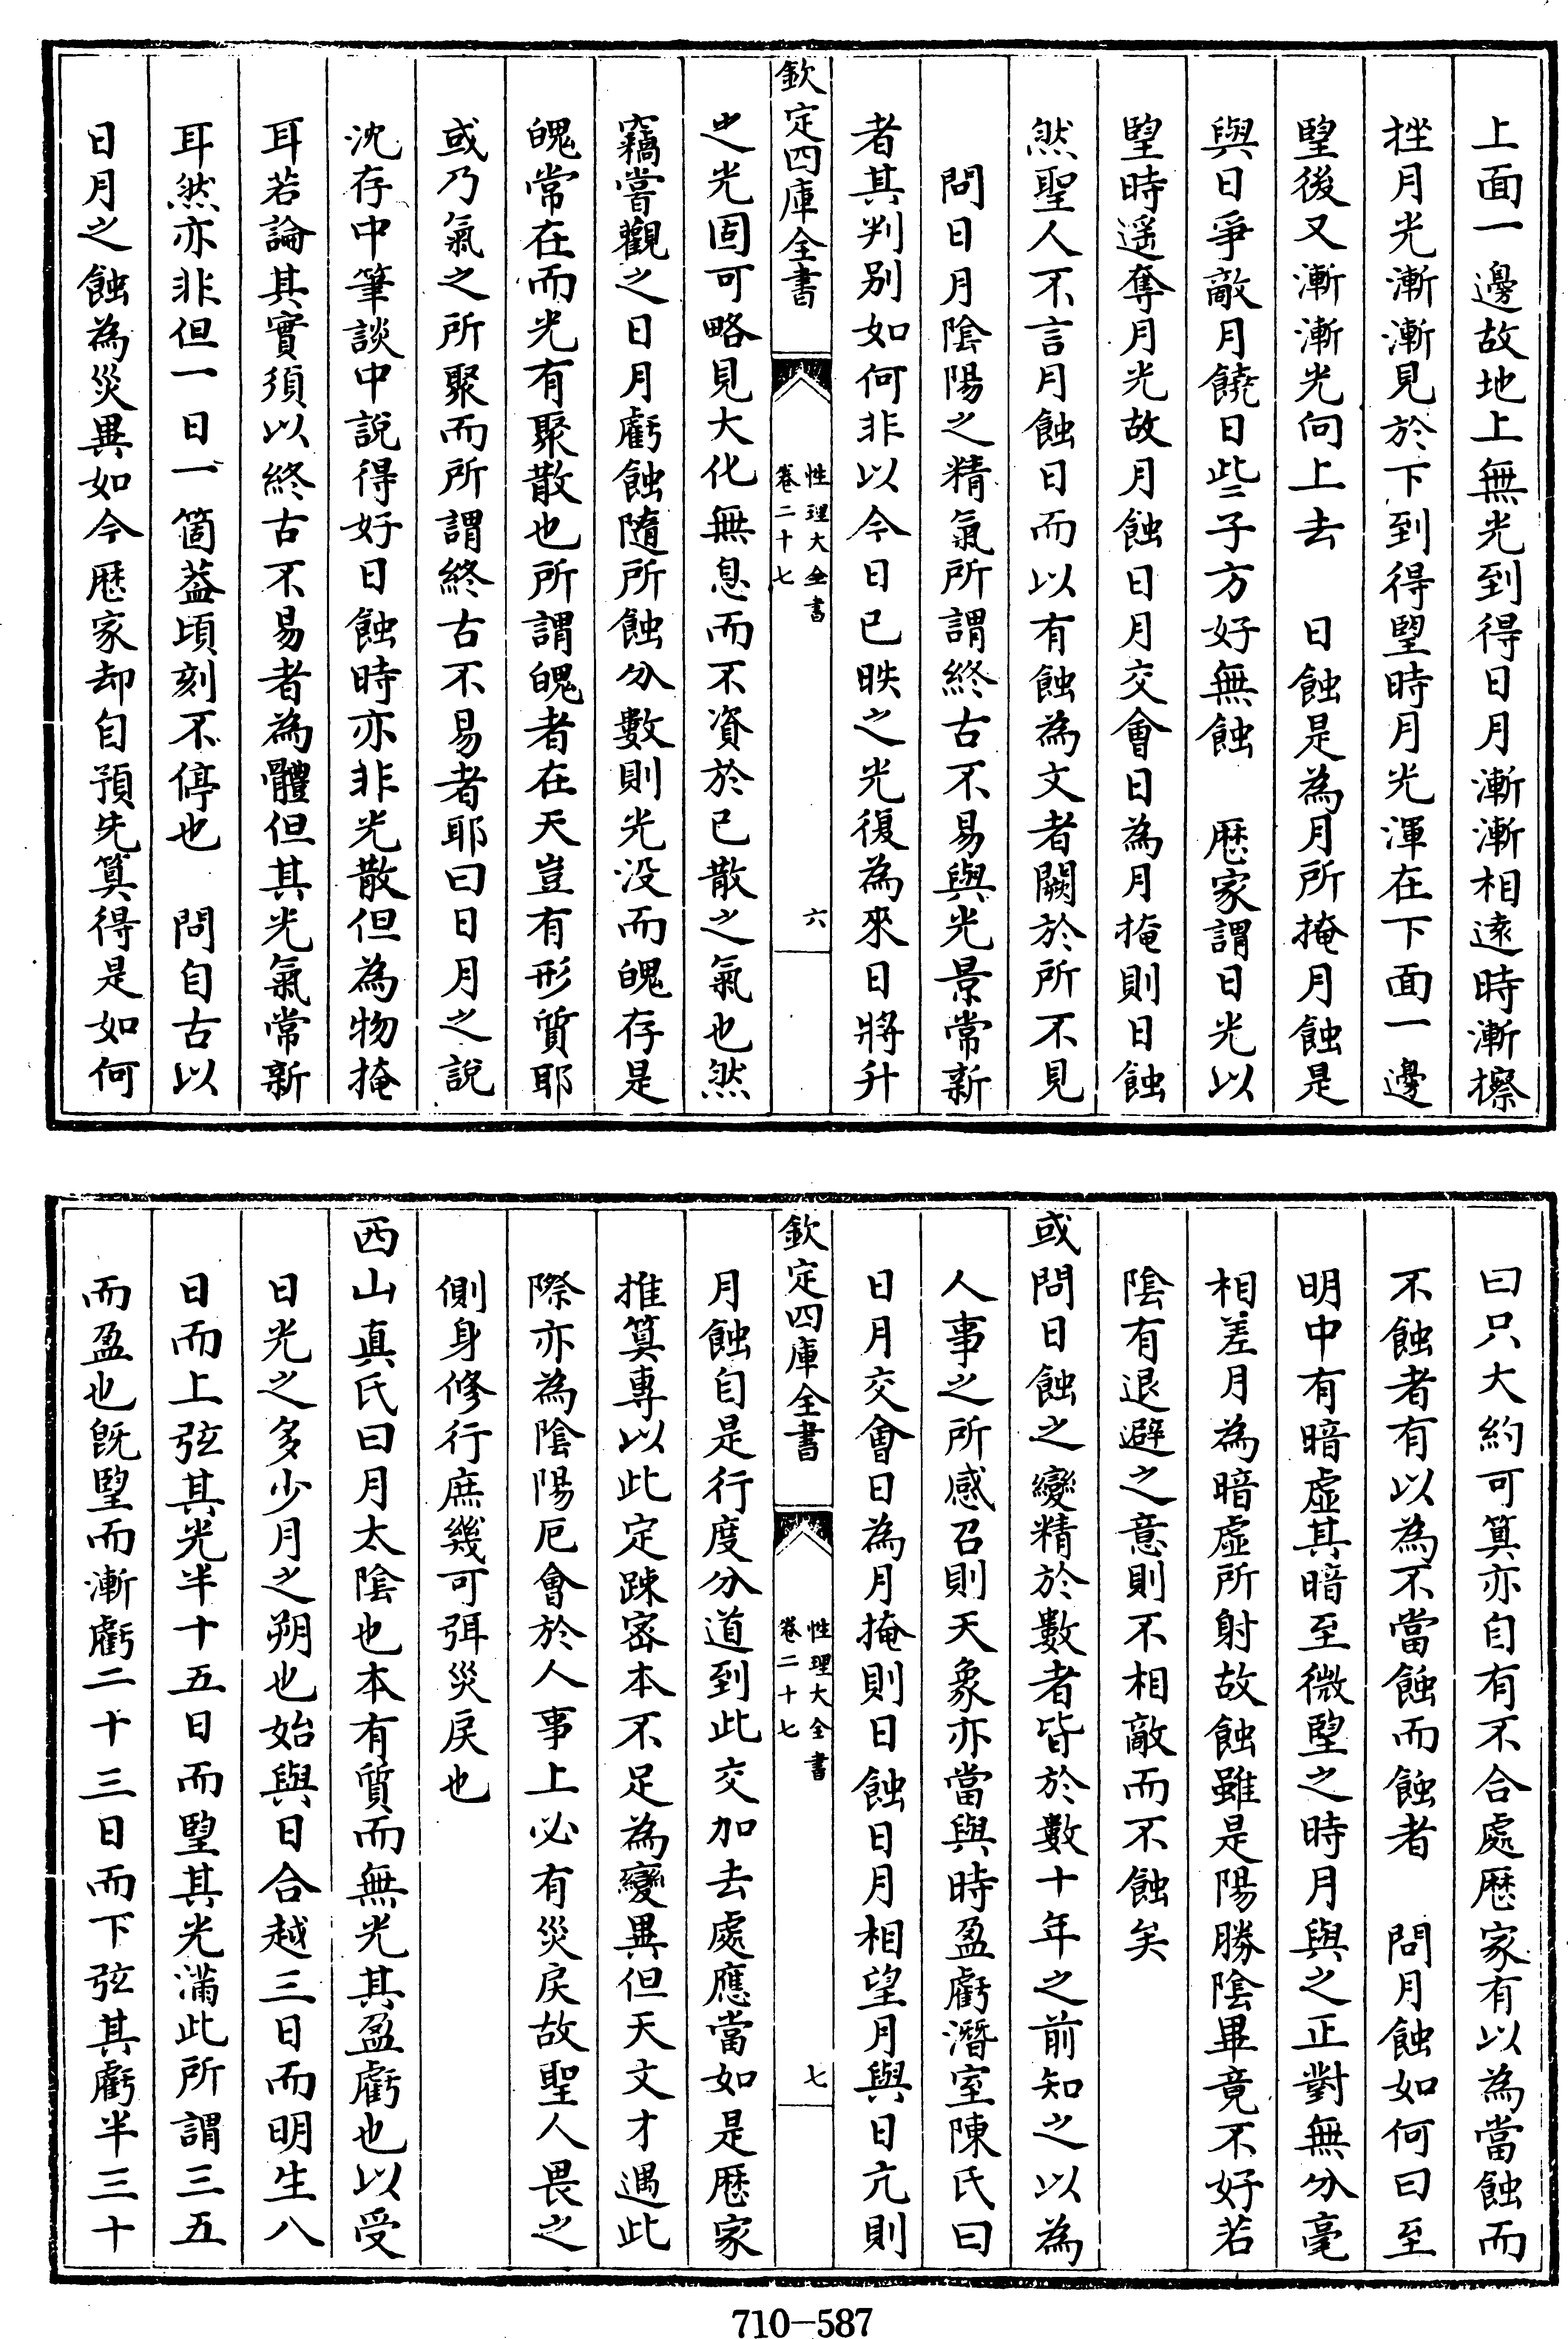 上面一邊故地上無光到得日月漸漸相遠時漸擦
挫月光漸漸見於下到得朢時月光渾在下面一邊
朢後又漸漸光向上去　日蝕是為月所掩月蝕是
與日爭敵月饒日些子方好無蝕　厯家謂日光以
朢時遥奪月光故月蝕日月交會日為月掩則日蝕
然聖人不言月蝕日而以有蝕為文者闕於所不見
問日月陰陽之精氣所謂終古不易與光景常新
者其判别如何非以今日已昳之光復為來日將升
欽定四庫全書
性理大全書
卷二十七
六
之光固可略見大化無息而不資於已散之氣也然
竊嘗觀之日月虧蝕隨所蝕分數則光没而魄存是
魄常在而光有聚散也所謂魄者在天豈有形質耶
或乃氣之所聚而所謂終古不易者耶曰日月之說
沈存中筆談中說得好日蝕時亦非光散但為物掩
耳若論其實須以終古不易者為體但其光氣常新
耳然亦非但一日一箇葢頃刻不停也　問自古以
日月之蝕為災異如今厯家却自預先算得是如何
曰只大約可算亦自有不合處厯家有以為當蝕而
不蝕者有以為不當蝕而蝕者　問月蝕如何曰至
明中有暗虚其暗至微朢之時月與之正對無分毫
相差月為暗虚所射故蝕雖是陽勝陰畢竟不好若
陰有退避之意則不相敵而不蝕矣
或問日蝕之變精於數者皆於數十年之前知之以為
人事之所感召則天象亦當與時盈虧潛室陳氏曰
日月交會日為月掩則日蝕日月相望月與日亢則
欽定四庫全書
性理大全書
卷二十七
七
月蝕自是行度分道到此交加去處應當如是厯家
推算專以此定踈宻本不足為變異但天文才遇此
際亦為陰陽厄會於人事上必有災戾故聖人畏之
側身修行庶幾可弭災戾也
西山真氏曰月太陰也本有質而無光其盈虧也以受
日光之多少月之朔也始與日合越三日而明生八
日而上弦其光半十五日而朢其光滿此所謂三五
而盈也既朢而漸虧二十三日而下弦其虧半三十
710—587